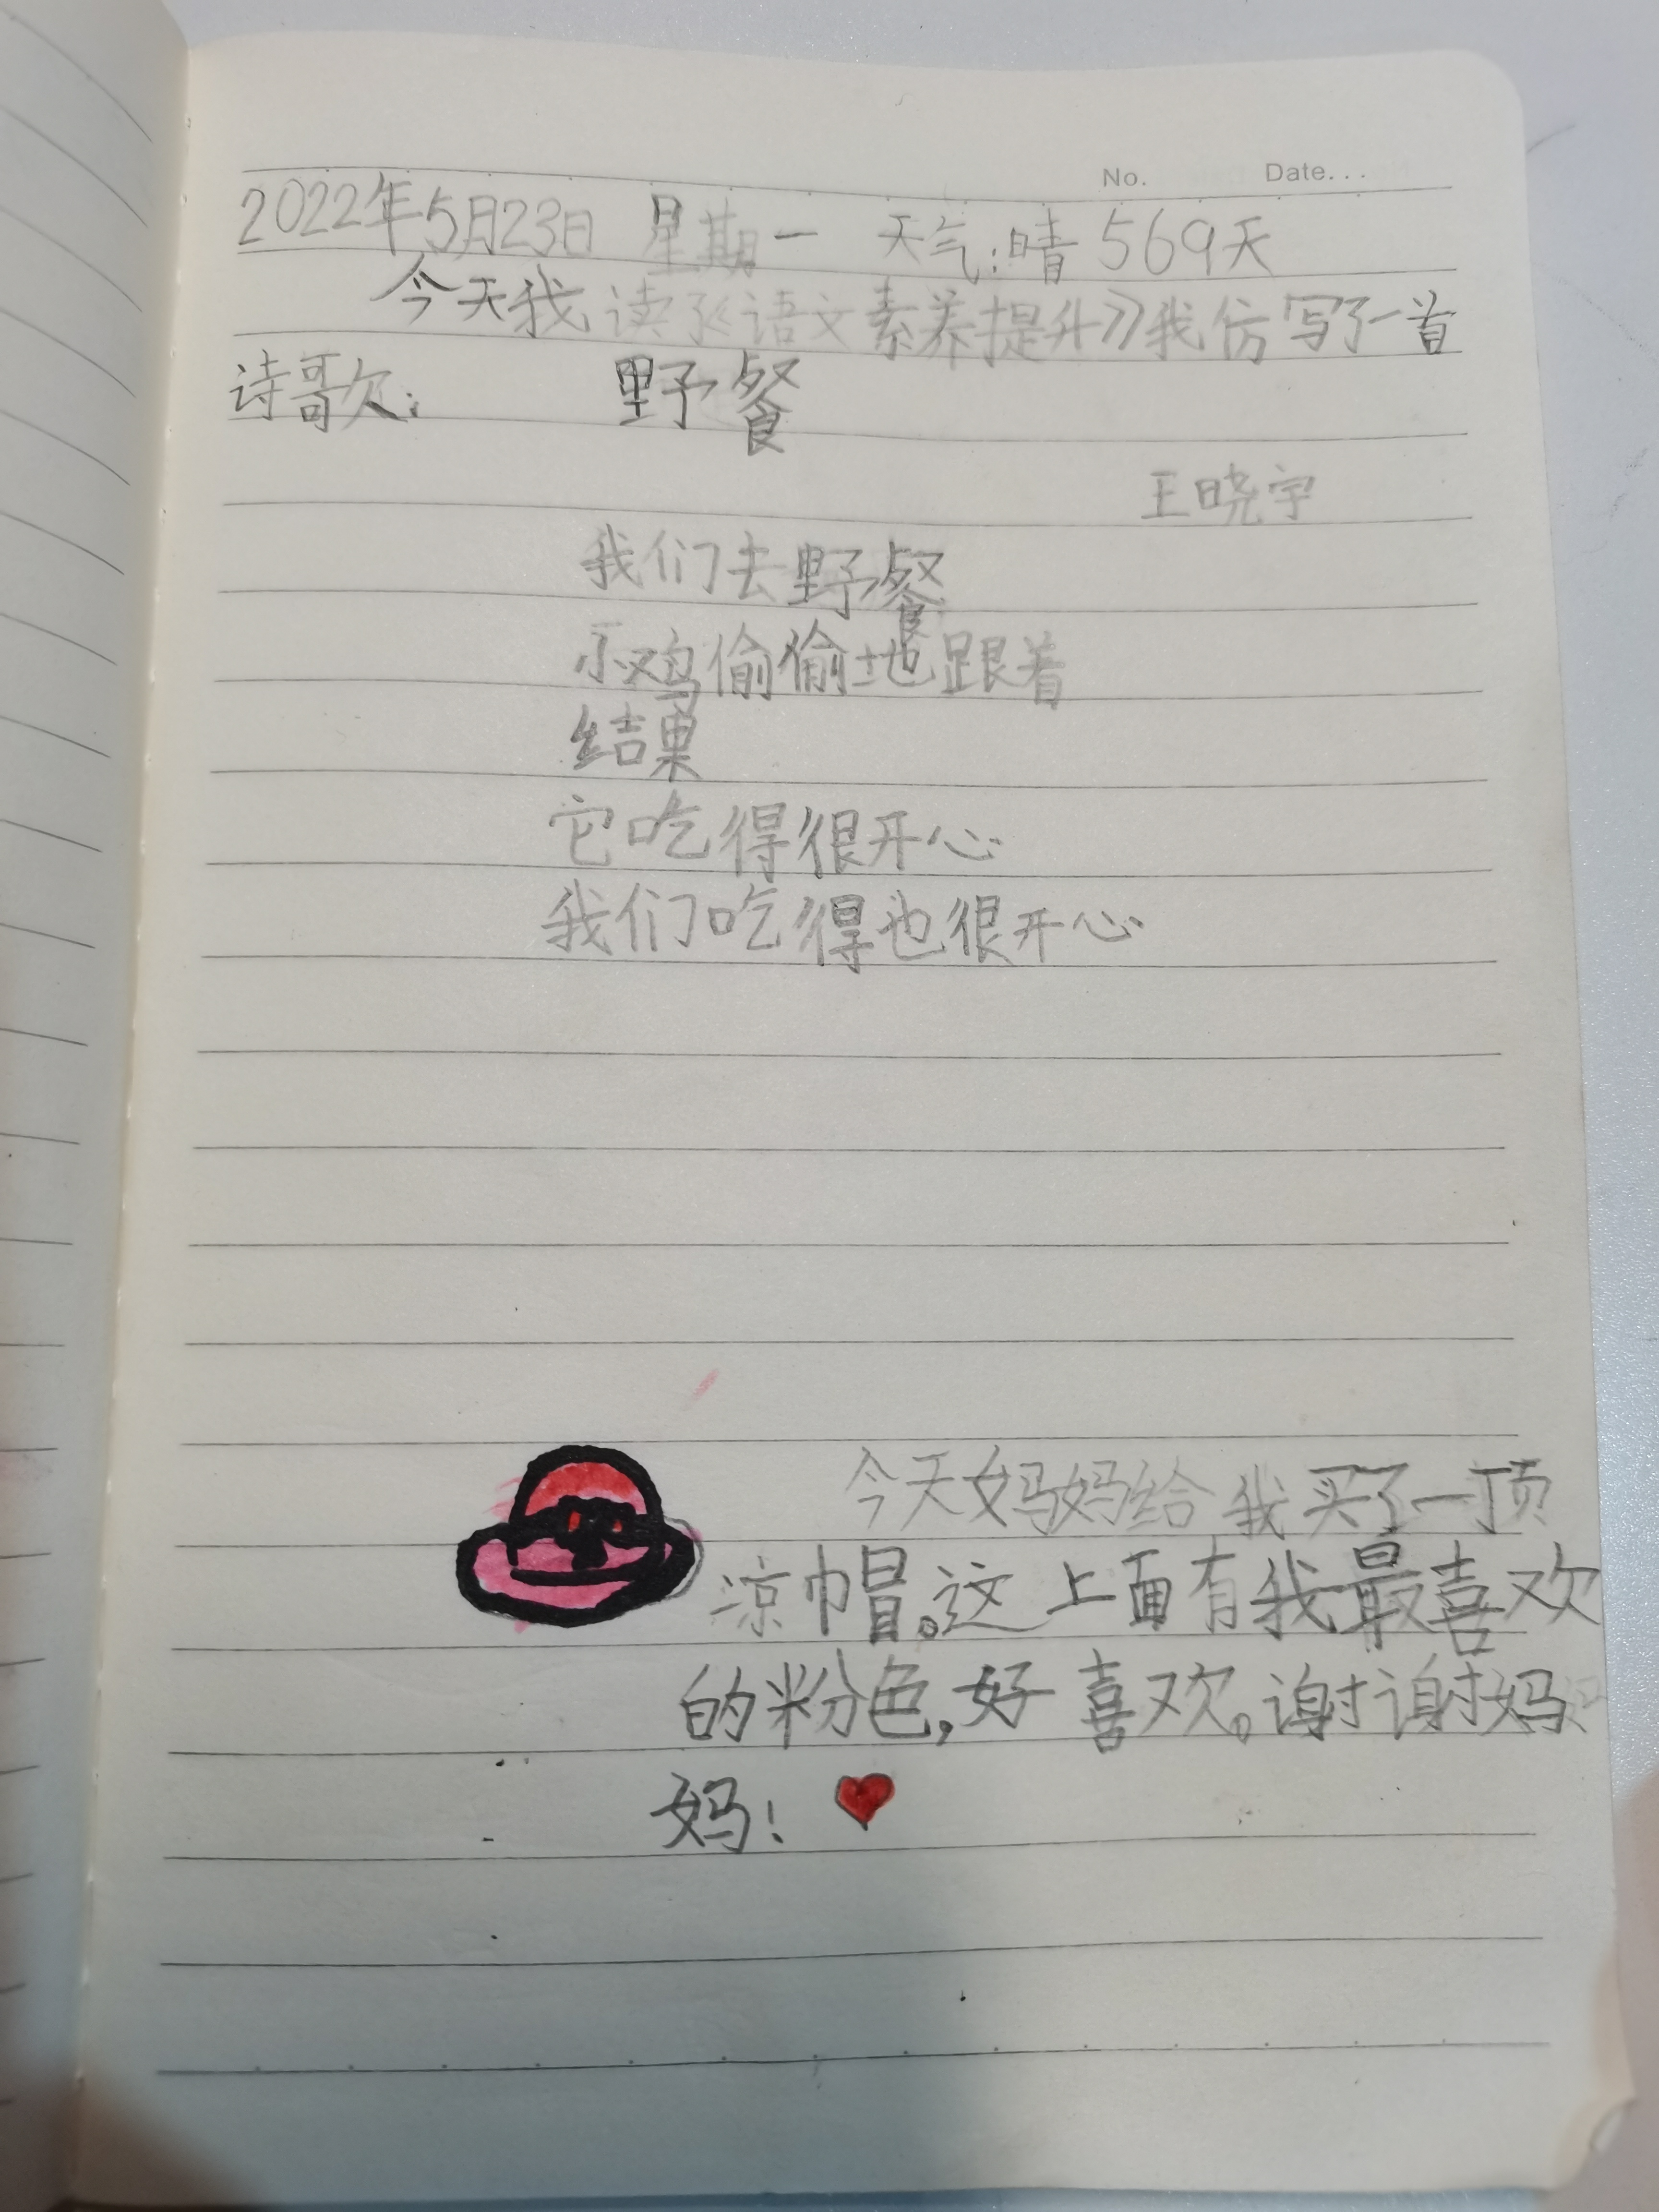 No. Date...
2022年5月23日 星期一 天气:晴 569天
今天我读了《语文素养提升》我仿写了一首
诗歌: 野餐
王晓宇
我们去野餐
小鸡偷偷地跟着
结果
它吃得很开心
我们吃得也很开心
今天妈妈给我买了一顶
凉帽。这上面有我最喜欢
的粉色,好喜欢。谢谢妈
妈!